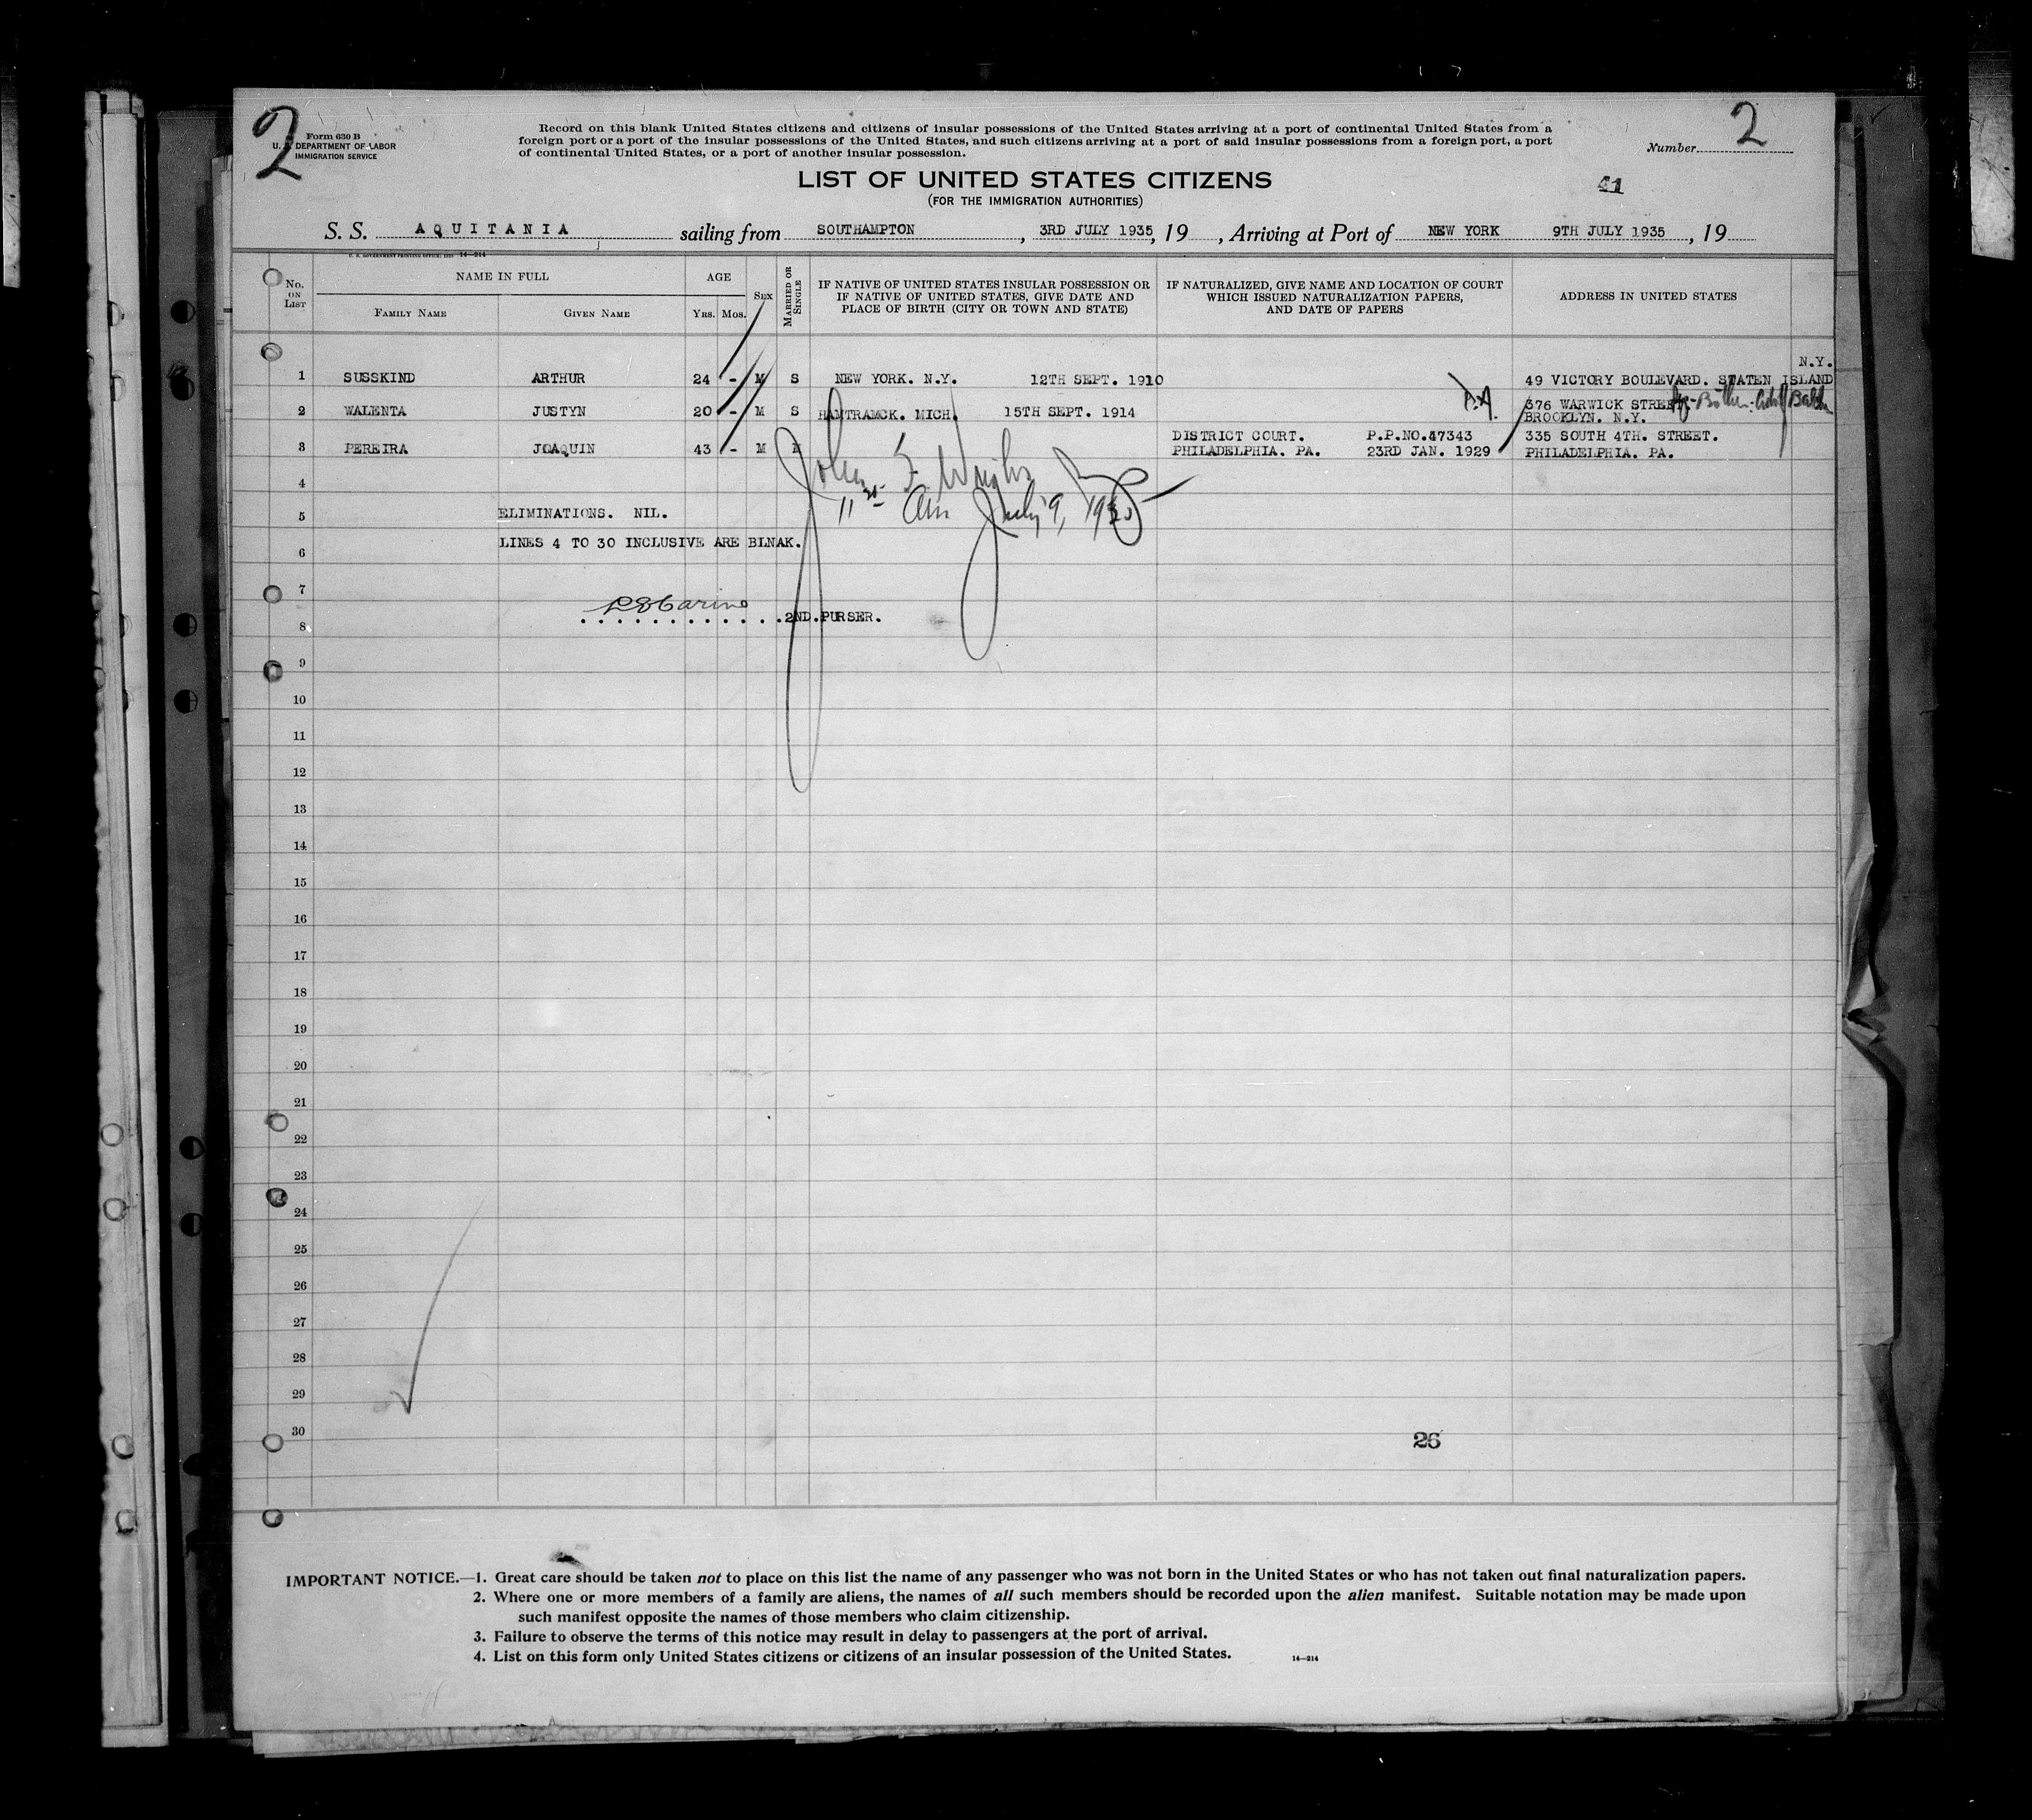 2
2
Form 630 B
U. S. DEPARTMENT OF LABOR
IMMIGRATION SERVICE
Record on this blank United States citizens and citizens of insular possessions of the United States arriving at a port of continental United States from a
foreign port or a port of the insular possessions of the United States, and such citizens arriving at a port of said insular possessions from a foreign port, a port
of continental United States, or a port of another insular possession.
Number
LIST OF UNITED STATES CITIZENS
(FOR THE IMMIGRATION AUTHORITIES)
41
S. S. AQUITANIA sailing from SOUTHAMPTON, 3RD JULY 1935, 19 , Arriving at Port of NEW YORK 9TH JULY 1935, 19
U. S. GOVERNMENT PRINTING OFFICE: 14—214
No. ON LIST NAME IN FULL AGE SEX MARRIED OR SINGLE IF NATIVE OF UNITED STATES INSULAR POSSESSION OR IF NATIVE OF UNITED STATES, GIVE DATE AND PLACE OF BIRTH (CITY OR TOWN AND STATE) IF NATURALIZED, GIVE NAME AND LOCATION OF COURT WHICH ISSUED NATURALIZATION PAPERS, AND DATE OF PAPERS ADDRESS IN UNITED STATES
FAMILY NAME GIVEN NAME YRS. MOS.
N.Y.
1 SUSSKIND ARTHUR 24 - M S NEW YORK. N.Y. 12TH SEPT. 1910 49 VICTORY BOULEVARD. STATEN ISLAND
2 WALENTA JUSTYN 20 - M S HAMTRAMCK. MICH. 15TH SEPT. 1914 376 WARWICK STREET.
BROOKLYN. N.Y.
DISTRICT COURT. P.P.NO.47343 335 SOUTH 4TH. STREET.
3 PEREIRA JOAQUIN 43 - M PHILADELPHIA. PA. 23RD JAN. 1929 PHILADELPHIA. PA.
4
John
July 9, 1935
5 ELIMINATIONS. NIL.
6 LINES 4 TO 30 INCLUSIVE ARE BLNAK.
7
8 ............2ND.PURSER.
9
10
11
12
13
14
15
16
17
18
19
20
21
22
23
24
25
26
27
28
29
30
26
IMPORTANT NOTICE.—1. Great care should be taken not to place on this list the name of any passenger who was not born in the United States or who has not taken out final naturalization papers.
2. Where one or more members of a family are aliens, the names of all such members should be recorded upon the alien manifest. Suitable notation may be made upon
such manifest opposite the names of those members who claim citizenship.
3. Failure to observe the terms of this notice may result in delay to passengers at the port of arrival.
4. List on this form only United States citizens or citizens of an insular possession of the United States. 14—214